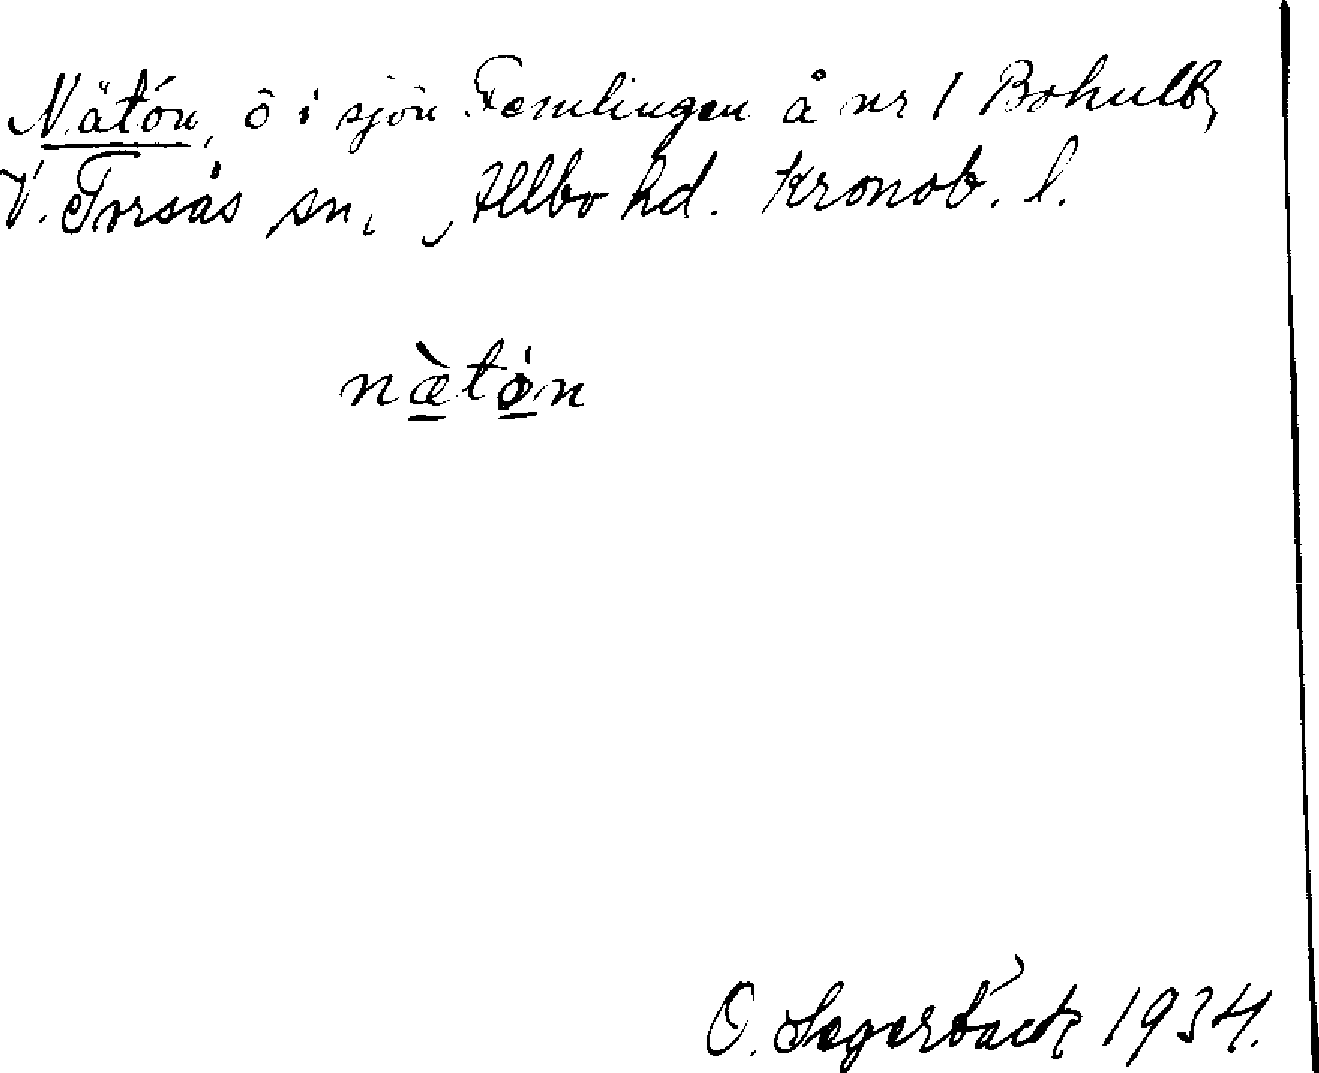 Nätön, ö i sjön Femlingen å nr 1 Bohult,
V. Torsås sn, Allbo hd. Kronob. l.
nætön
O. Sagerbäck 1934.